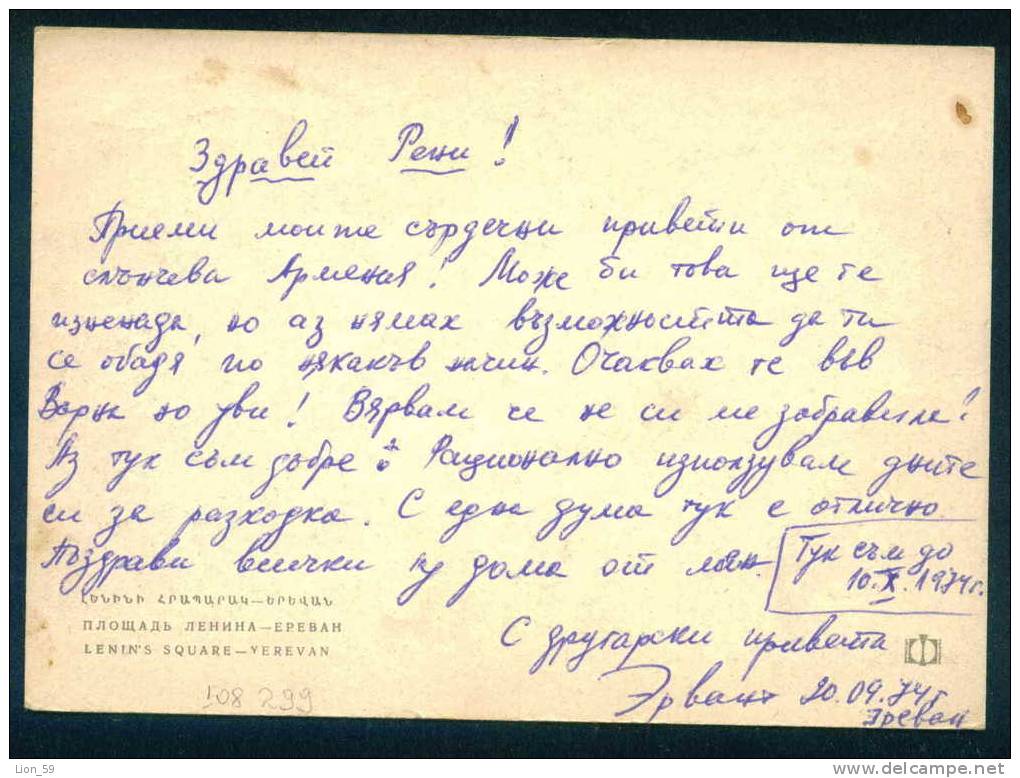 Здравей Рени!
Приеми моите сърдечни привети от
слънчева Армения! Може би това ще те
изненада, но аз нямах възможността да ти
се обадя по някакъв начин. Очаквах те във
Варна но уви! Вярвам че не си ме забравила!
Аз тук съм добре. Рационално използувам дните
си за разходка. С една дума тук е отлично
Поздрави всички у дома от мен.
Тук съм до
10.X.1974г.
ԼԵՆԻՆԻ ՀՐԱՊԱՐԱԿ—ԵՐԵՎԱՆ
ПЛОЩАДЬ ЛЕНИНА—ЕРЕВАН
LENIN'S SQUARE—YEREVAN
С другарски привети
Ерvant 20.09.74г
Ереван
108 299
Lion_59
delcampe.net